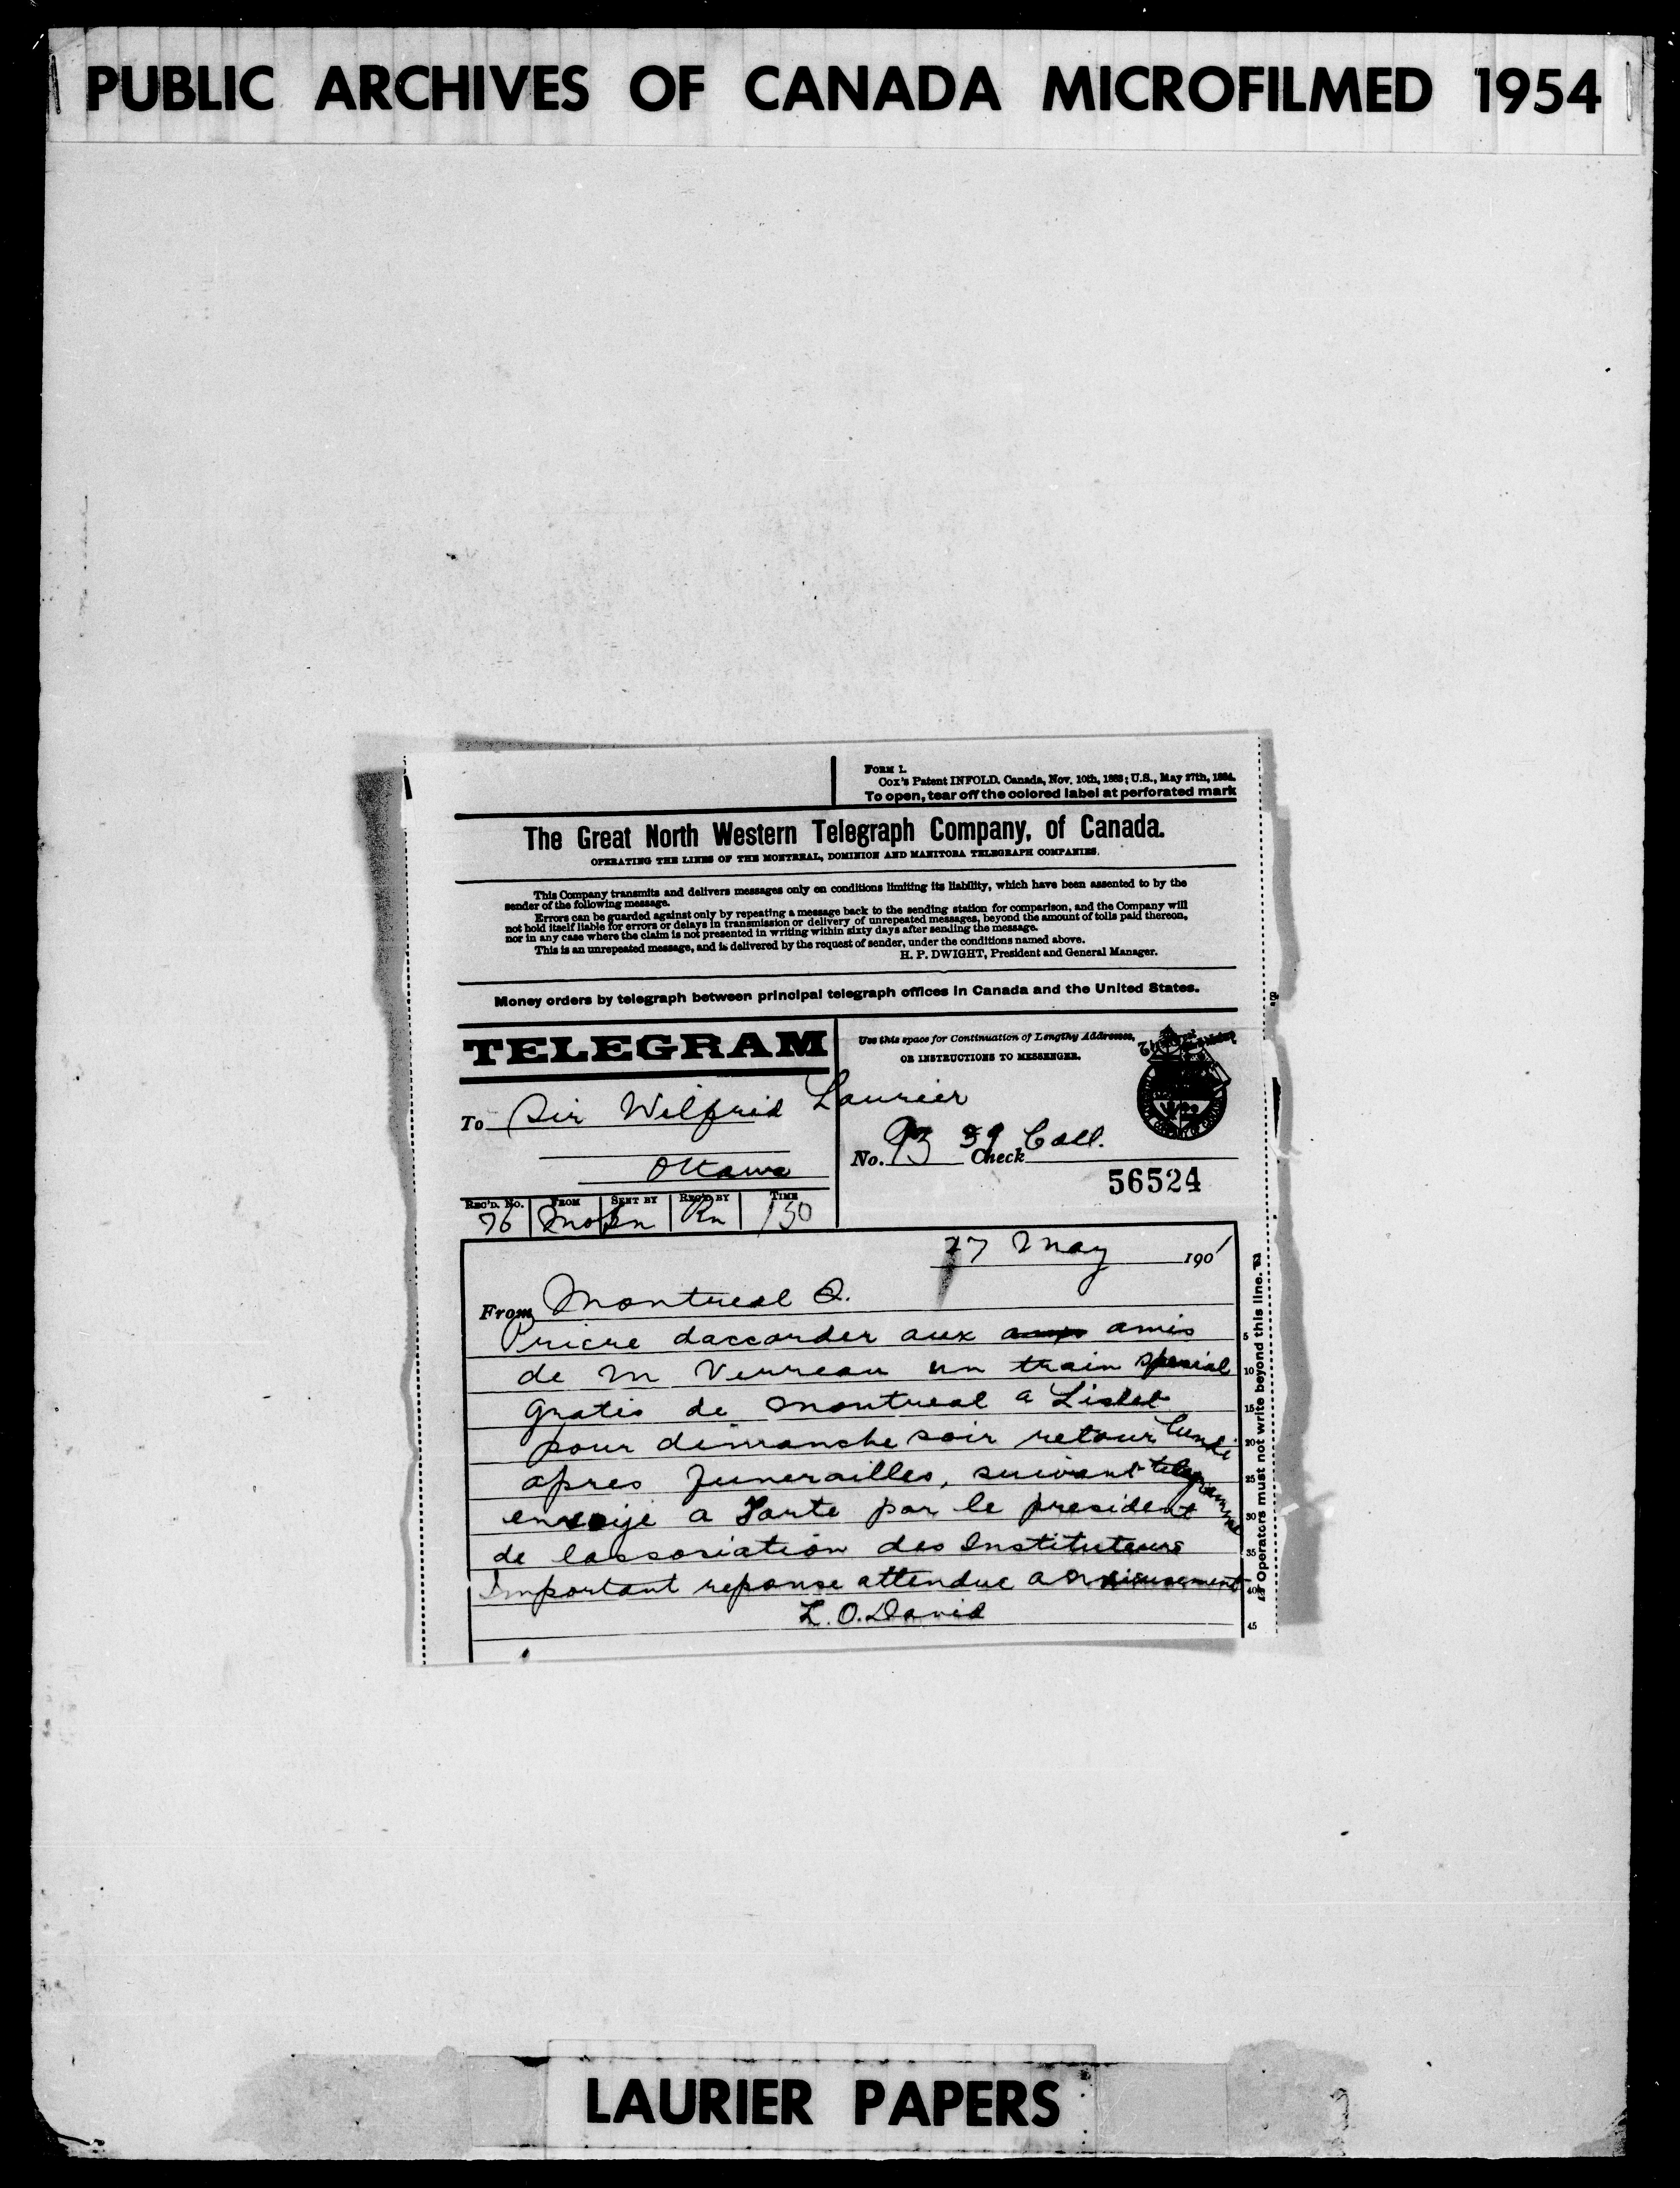 PUBLIC ARCHIVES OF CANADA MICROFILMED 1954
FORM 1.
Cox's Patent INFOLD. Canada, Nov. 10th, 1883; U.S., May 27th, 1884.
To open, tear off the colored label at perforated mark
The Great North Western Telegraph Company, of Canada.
OPERATING THE LINES OF THE MONTREAL, DOMINION AND MANITOBA TELEGRAPH COMPANIES.
This Company transmits and delivers messages only on conditions limiting its liability, which have been assented to by the
sender of the following message.
Errors can be guarded against only by repeating a message back to the sending station for comparison, and the Company will
not hold itself liable for errors or delays in transmission or delivery of unrepeated messages, beyond the amount of tolls paid thereon,
nor in any case where the claim is not presented in writing within sixty days after sending the message.
This is an unrepeated message, and is delivered by the request of sender, under the conditions named above.
H. P. DWIGHT, President and General Manager.
Money orders by telegraph between principal telegraph offices in Canada and the United States.
TELEGRAM
Use this space for Continuation of Lengthy Addresses,
OR INSTRUCTIONS TO MESSENGER.
To Sir Wilfrid Laurier
Ottawa
No. 93 Check 39 Coll.
56524
REC'D. No. FROM SENT BY REC'D BY TIME
76 Rn 150
17 May 1901
From Montreal Q.
Priere daccorder aux amis
de M Verreau un train special
gratis de Montreal a Lislet
pour dimanche soir retour lundi
apres funerailles, suivant telegramme
envoije a Tarte par le president
de lassosiation des Instituteurs
Important reponse attendue
L. O. David
5
10
15
20
25
30
35
40
45
Operators must not write beyond this line.
LAURIER PAPERS